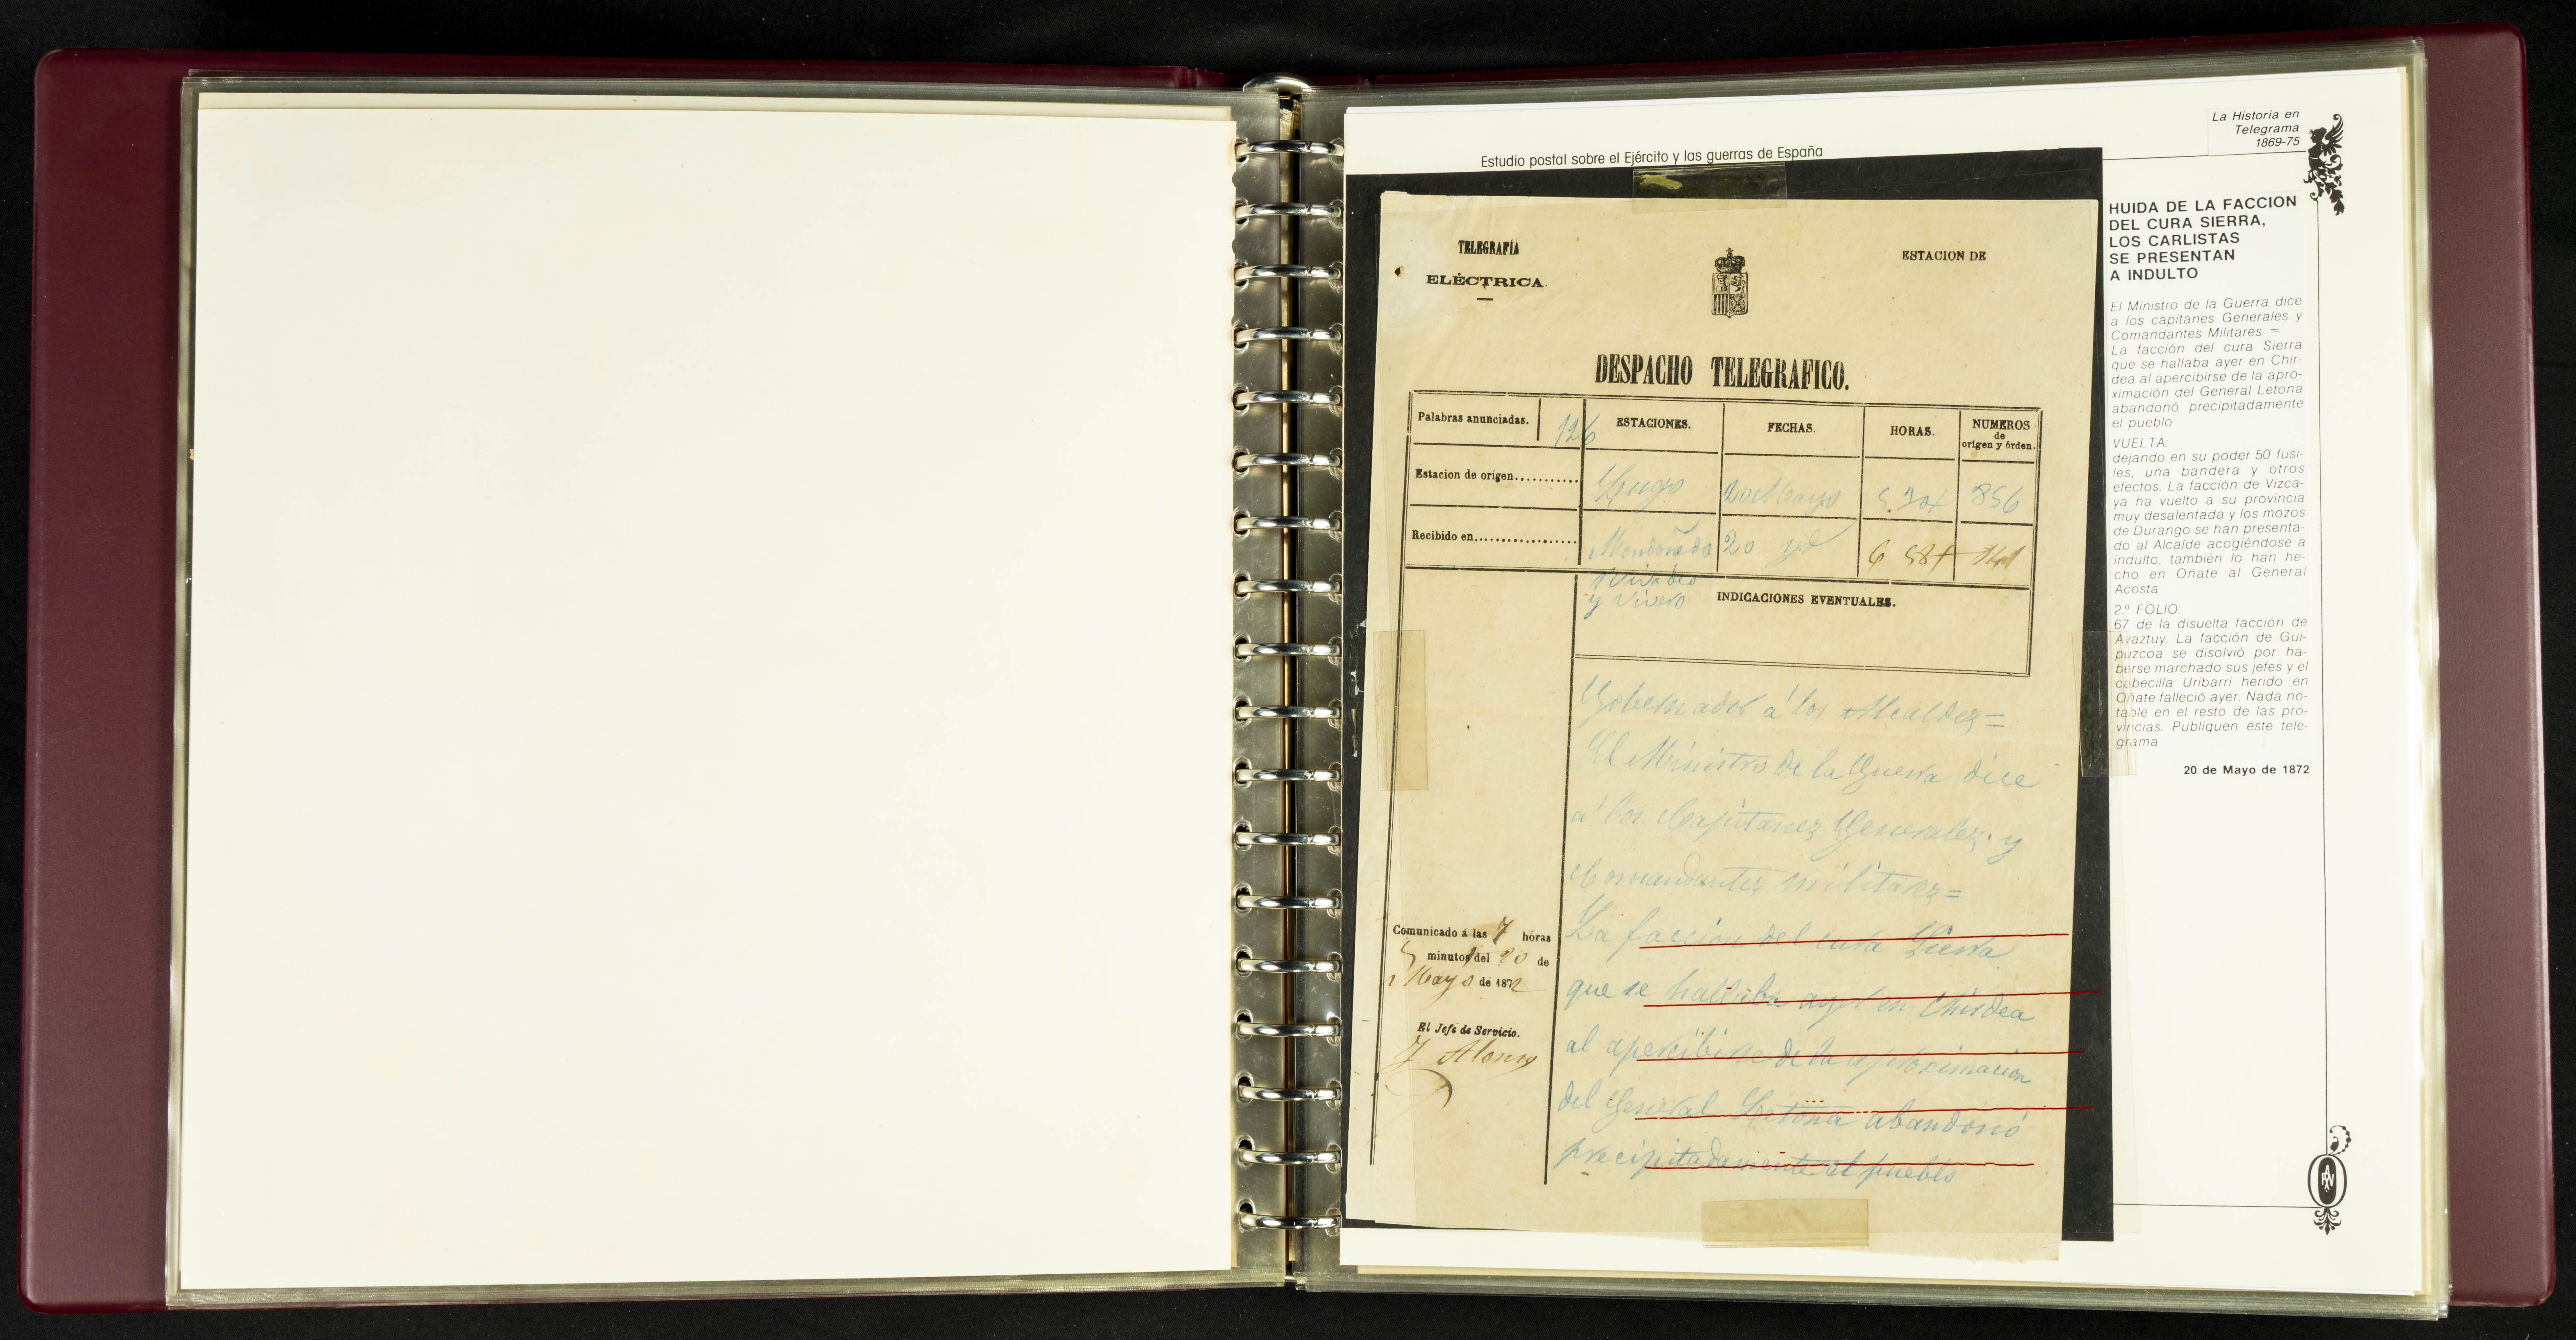 La Historia en
Telegrama
1869-75
Estudio postal sobre el Ejército y las guerras de España
TELEGRAFÍA
ELÉCTRICA.
ESTACION DE
DESPACHO TELEGRAFICO.
Palabras anunciadas. 126 ESTACIONES. FECHAS. HORAS. NUMEROS
de
origen y órden.
Estacion de origen........... Lugo 20 Mayo 5.30t 856
Recibido en.................. Mondoñedo 20 id 6 58t 141
Rivadeo
y Vivero INDICACIONES EVENTUALES.
Gobernador á los Alcaldes=
El Ministro de la Guerra dice
á los Capitanes Generales y
Comandantes militares=
La faccion del cura Sierra
que se hallaba ayer en Chirdea
al apercibirse de la aproximacion
del General Letona abandonó
precipitadamente el pueblo
Comunicado á las 7 horas
5 minutos del 20 de
Mayo de 1872
El Jefe de Servicio.
J Alonso
HUIDA DE LA FACCION
DEL CURA SIERRA,
LOS CARLISTAS
SE PRESENTAN
A INDULTO
El Ministro de la Guerra dice
a los capitanes Generales y
Comandantes Militares =
La facción del cura Sierra
que se hallaba ayer en Chir-
dea al apercibirse de la apro-
ximación del General Letona
abandonó precipitadamente
el pueblo
VUELTA:
dejando en su poder 50 fusi-
les, una bandera y otros
efectos. La facción de Vizca-
ya ha vuelto a su provincia
muy desalentada y los mozos
de Durango se han presenta-
do al Alcalde acogiéndose a
indulto, también lo han he-
cho en Oñate al General
Acosta
2.º FOLIO:
67 de la disuelta facción de
Ayaztuy. La facción de Gui-
púzcoa se disolvió por ha-
berse marchado sus jefes y el
cabecilla Uribarri herido en
Oñate falleció ayer. Nada no-
table en el resto de las pro-
vincias. Publiquen este tele-
grama
20 de Mayo de 1872